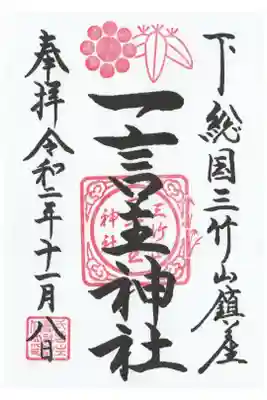 下総国三竹山鎮座
一言主神社
奉拝令和二年十一月八日